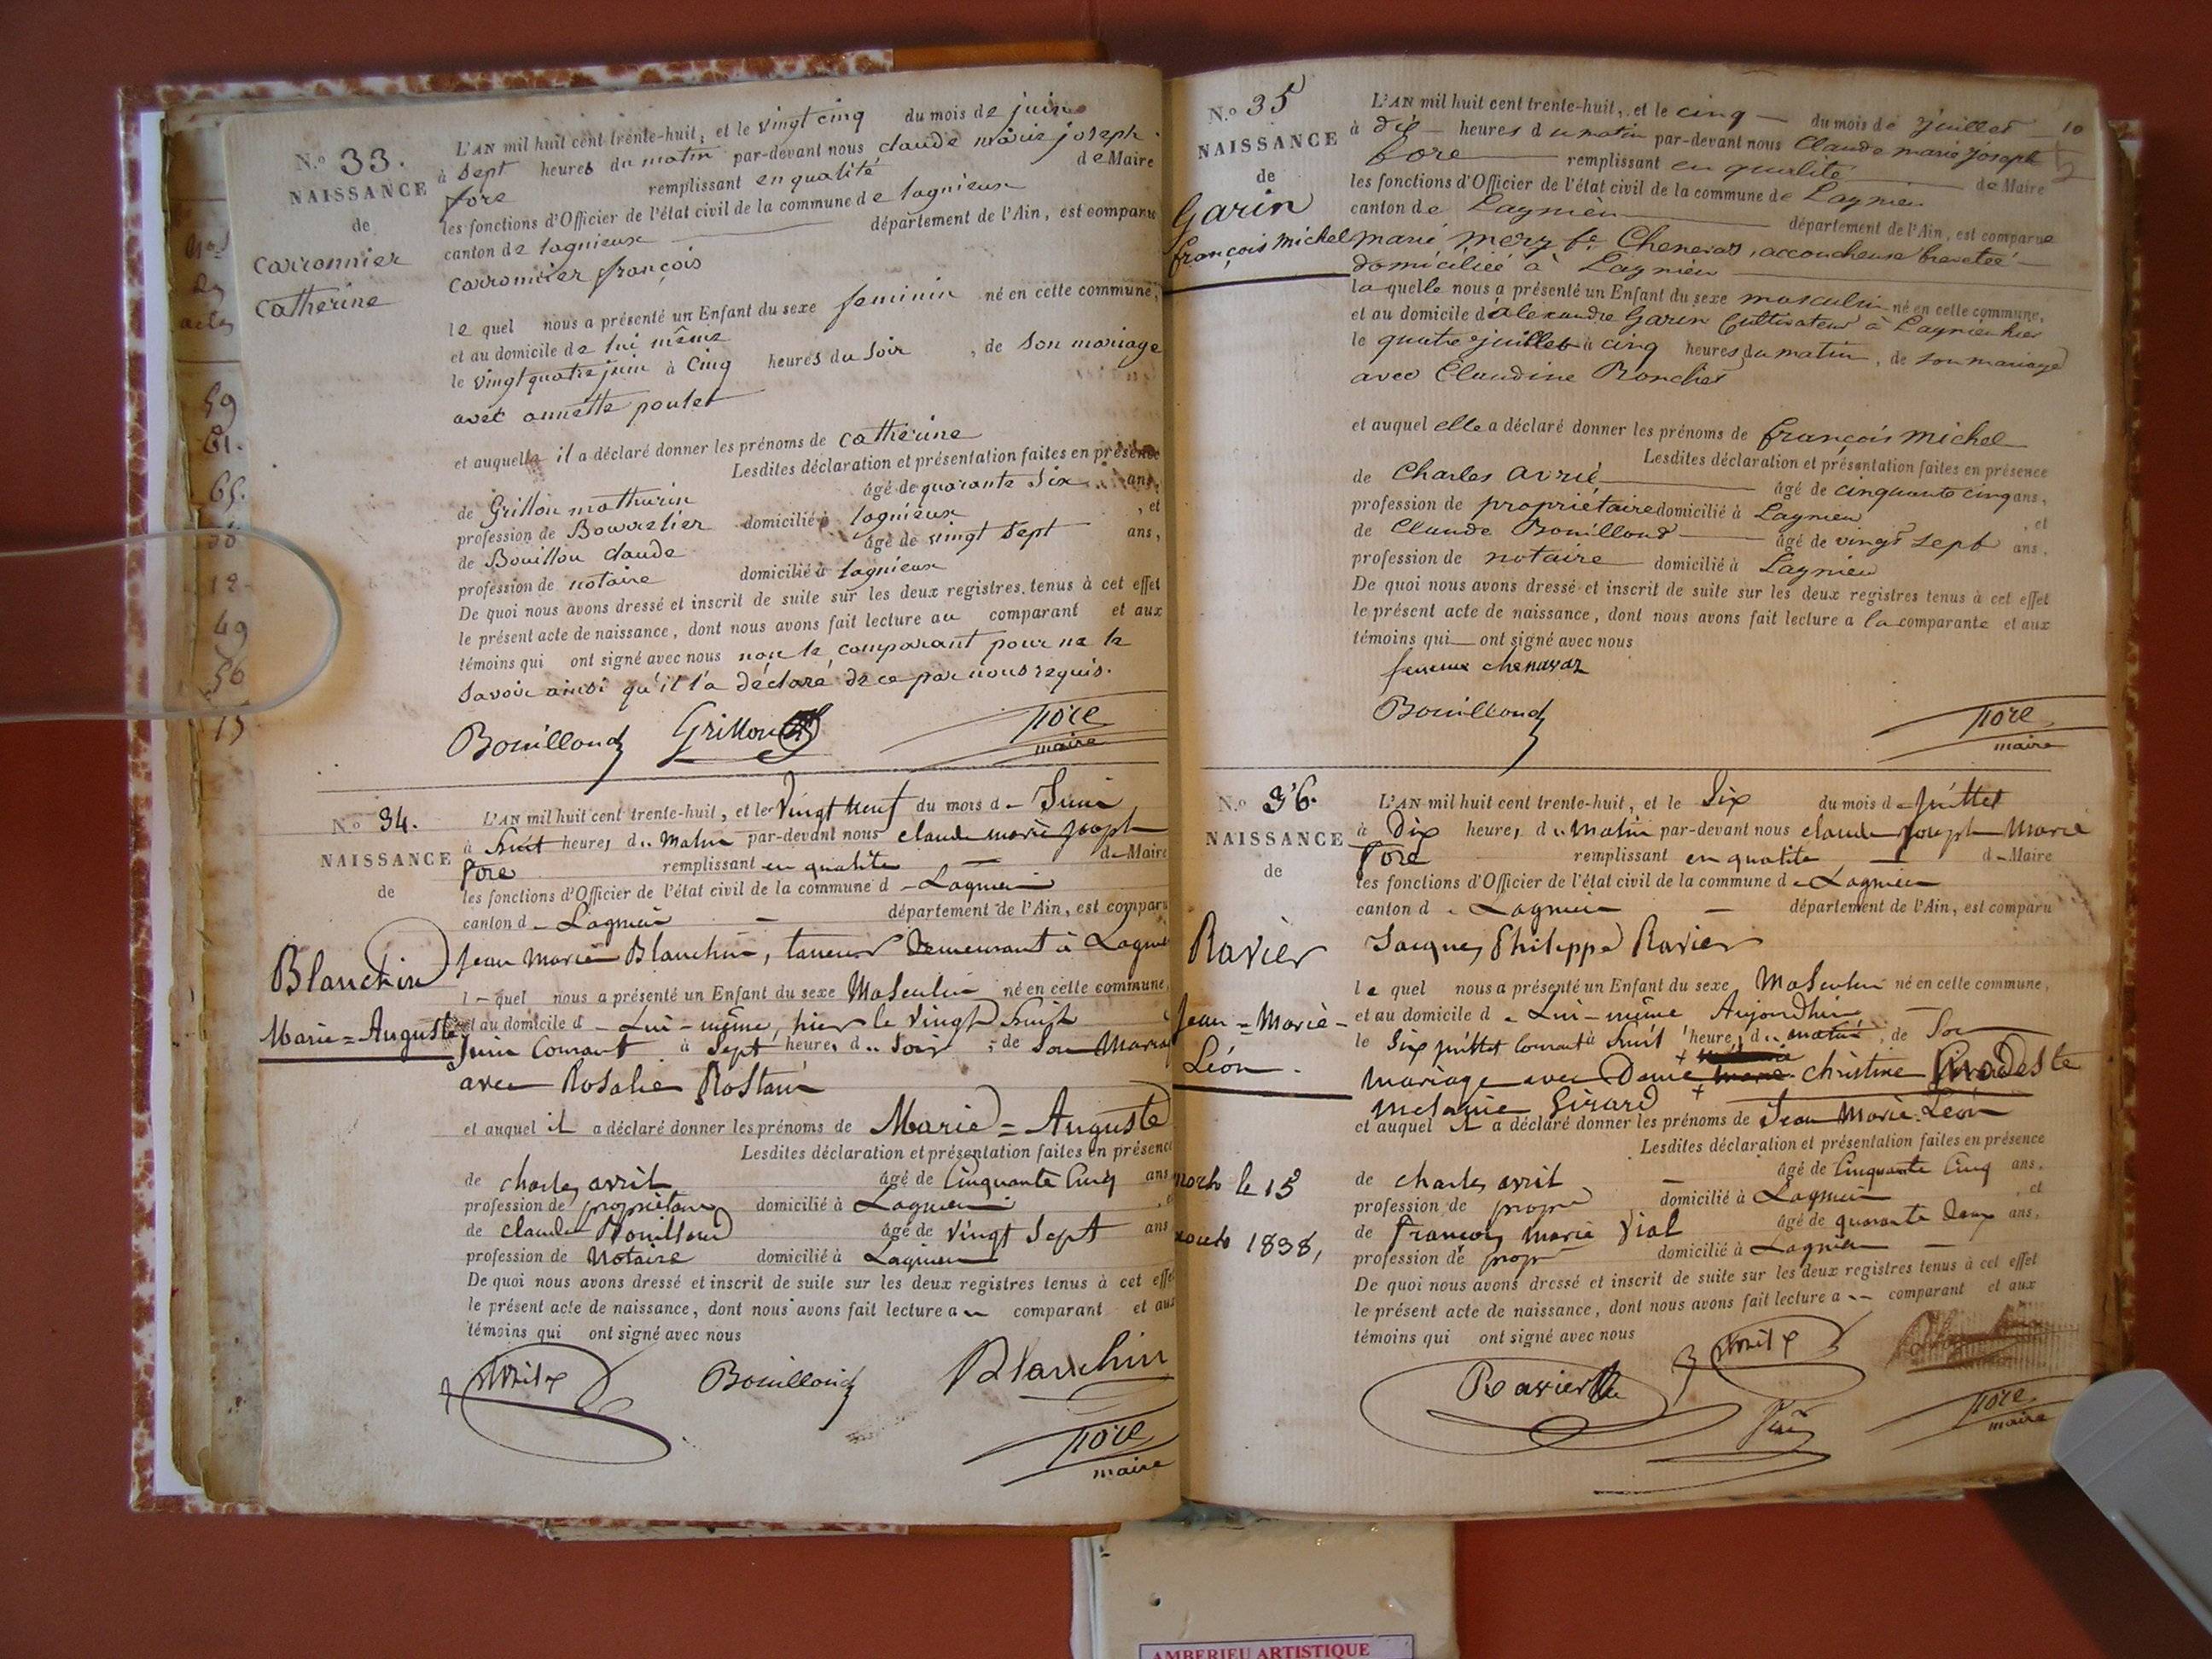 N.o 33.
NAISSANCE
de
Carronnier
Catherine
L'AN mil huit cent trente-huit, et le vingt cinq du mois de juin
à sept heures du matin par-devant nous claude marie joseph
fore remplissant en qualité de Maire
les fonctions d'Officier de l'état civil de la commune de lagnieux
canton de lagnieux département de l'Ain, est comparu
Carronnier françois
le quel nous a présenté un Enfant du sexe feminin né en cette commune,
et au domicile de lui même
le vingt quatre juin à Cinq heures du soir, de son mariage
avec annette poulet
et auquelle il a déclaré donner les prénoms de Catherine
Lesdites déclaration et présentation faites en présence
de Grillon mathurin âgé de quarante Six ans,
profession de Bourrelier domicilié à lagnieux, et
de Bouillou claude âgé de vingt sept ans,
profession de notaire domicilié à lagnieux
De quoi nous avons dressé et inscrit de suite sur les deux registres tenus à cet effet
le présent acte de naissance, dont nous avons fait lecture au comparant et aux
témoins qui ont signé avec nous non le comparant pour ne le
savoir ainsi qu'il l'a déclaré de ce par nous requis.
Bouilloud Grillon fore
maire
N.o 34.
NAISSANCE
de
Blanchin
Marie=Auguste
L'AN mil huit cent trente-huit, et le Vingt neuf du mois de Juin
à huit heures du Matin par-devant nous claude marie joseph
fore remplissant en qualite de Maire
les fonctions d'Officier de l'état civil de la commune de Lagnieu
canton de Lagnieu département de l'Ain, est comparu
Jean Marie Blanchin, taneur Demeurant à Lagnieu
le quel nous a présenté un Enfant du sexe Masculin né en cette commune,
et au domicile de Lui-même, hier le vingt huit
Juin Courant à Sept heures du Soir, de Son Mariage
avec Rosalie Rostain
et auquel il a déclaré donner les prénoms de Marie=Auguste
Lesdites déclaration et présentation faites en présence
de charles avril âgé de Cinquante Cinq ans
profession de propriétaire domicilié à Lagnieu, et
de claude Bouilloud âgé de vingt Sept ans
profession de Notaire domicilié à Lagnieu
De quoi nous avons dressé et inscrit de suite sur les deux registres tenus à cet effet
le présent acte de naissance, dont nous avons fait lecture au comparant et aux
témoins qui ont signé avec nous
Avril Bouilloud Blanchin
fore
maire
59
61.
65.
12
49
56
15
N.o 35
NAISSANCE
de
Garin
françois michel
L'AN mil huit cent trente-huit, et le cinq du mois de juillet
10
à dix heures du matin par-devant nous Claude marie joseph
fore remplissant en qualité de Maire
les fonctions d'Officier de l'état civil de la commune de Lagnieu
canton de Lagnieu département de l'Ain, est comparue
marie mery fe Chenevas, accoucheuse brevetée
domiciliée à Lagnieu
laquelle nous a présenté un Enfant du sexe masculin né en cette commune,
et au domicile d'alexandre Garin Cultivateur à Lagnieu hier
le quatre juillet à cinq heures du matin, de son mariage
avec Claudine Ronchet
et auquel elle a déclaré donner les prénoms de françois michel
Lesdites déclaration et présentation faites en présence
de Charles avril âgé de cinquante cinq ans,
profession de propriétaire domicilié à Lagnieu, et
de Claude Bouilloud âgé de vingt sept ans,
profession de notaire domicilié à Lagnieu
De quoi nous avons dressé et inscrit de suite sur les deux registres tenus à cet effet
le présent acte de naissance, dont nous avons fait lecture a la comparante et aux
témoins qui ont signé avec nous
femme chenavaz
Bouilloud fore
maire
N.o 36.
NAISSANCE
de
Ravier
Jean=Marie-
Léon.
L'AN mil huit cent trente-huit, et le Six du mois de Juillet
à Dix heures du Matin par-devant nous claude joseph Marie
fore remplissant en qualite de Maire
les fonctions d'Officier de l'état civil de la commune de Lagnieu
canton de Lagnieu département de l'Ain, est comparu
Jacques Philippe Ravier
le quel nous a présenté un Enfant du sexe Masculin né en cette commune,
et au domicile de Lui-même Aujourdhui
le Six juillet Courant à huit heures du matin, de Son
Mariage avec Dame Marie Christine Modeste
Melanie Girard
et auquel il a déclaré donner les prénoms de Jean Marie Léon
Lesdites déclaration et présentation faites en présence
de charles avril âgé de Cinquante Cinq ans,
profession de propre domicilié à Lagnieu, et
de françois Marie Vial âgé de quarante Deux ans,
profession de propre domicilié à Lagnieu
De quoi nous avons dressé et inscrit de suite sur les deux registres tenus à cet effet
le présent acte de naissance, dont nous avons fait lecture au comparant et aux
témoins qui ont signé avec nous
le 15
1838,
Avril
Ravier
Vial
fore
maire
AMBERIEU ARTISTIQUE